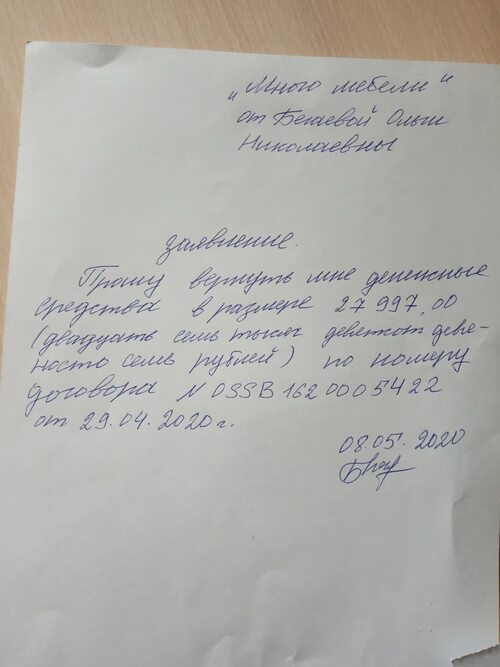 „Много мебели"
от Бекаевой Ольги
Николаевны
заявление.
Прошу вернуть мне денежные
средства в размере 27997,00
(двадцать семь тысяч девятьсот девя-
носто семь рублей) по номеру
договора N OSSB1620005422
от 29.04.2020г.
08.05.2020